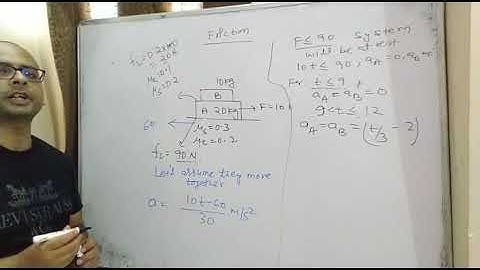 Friction
f₂=0.2×100
= 20N
μₛ=0.2
10kg
B
A 20kg
F=10t
μₛ=0.3
μₖ=0.2
60
fₗ=90N
Let's assume they move
together
a= (10t-60)/30 m/s²
F≤90 system
will be at rest
10t≤90,
For t≤9
a_A=a_B=0
9<t≤12
a_A=a_B=(t/3-2)